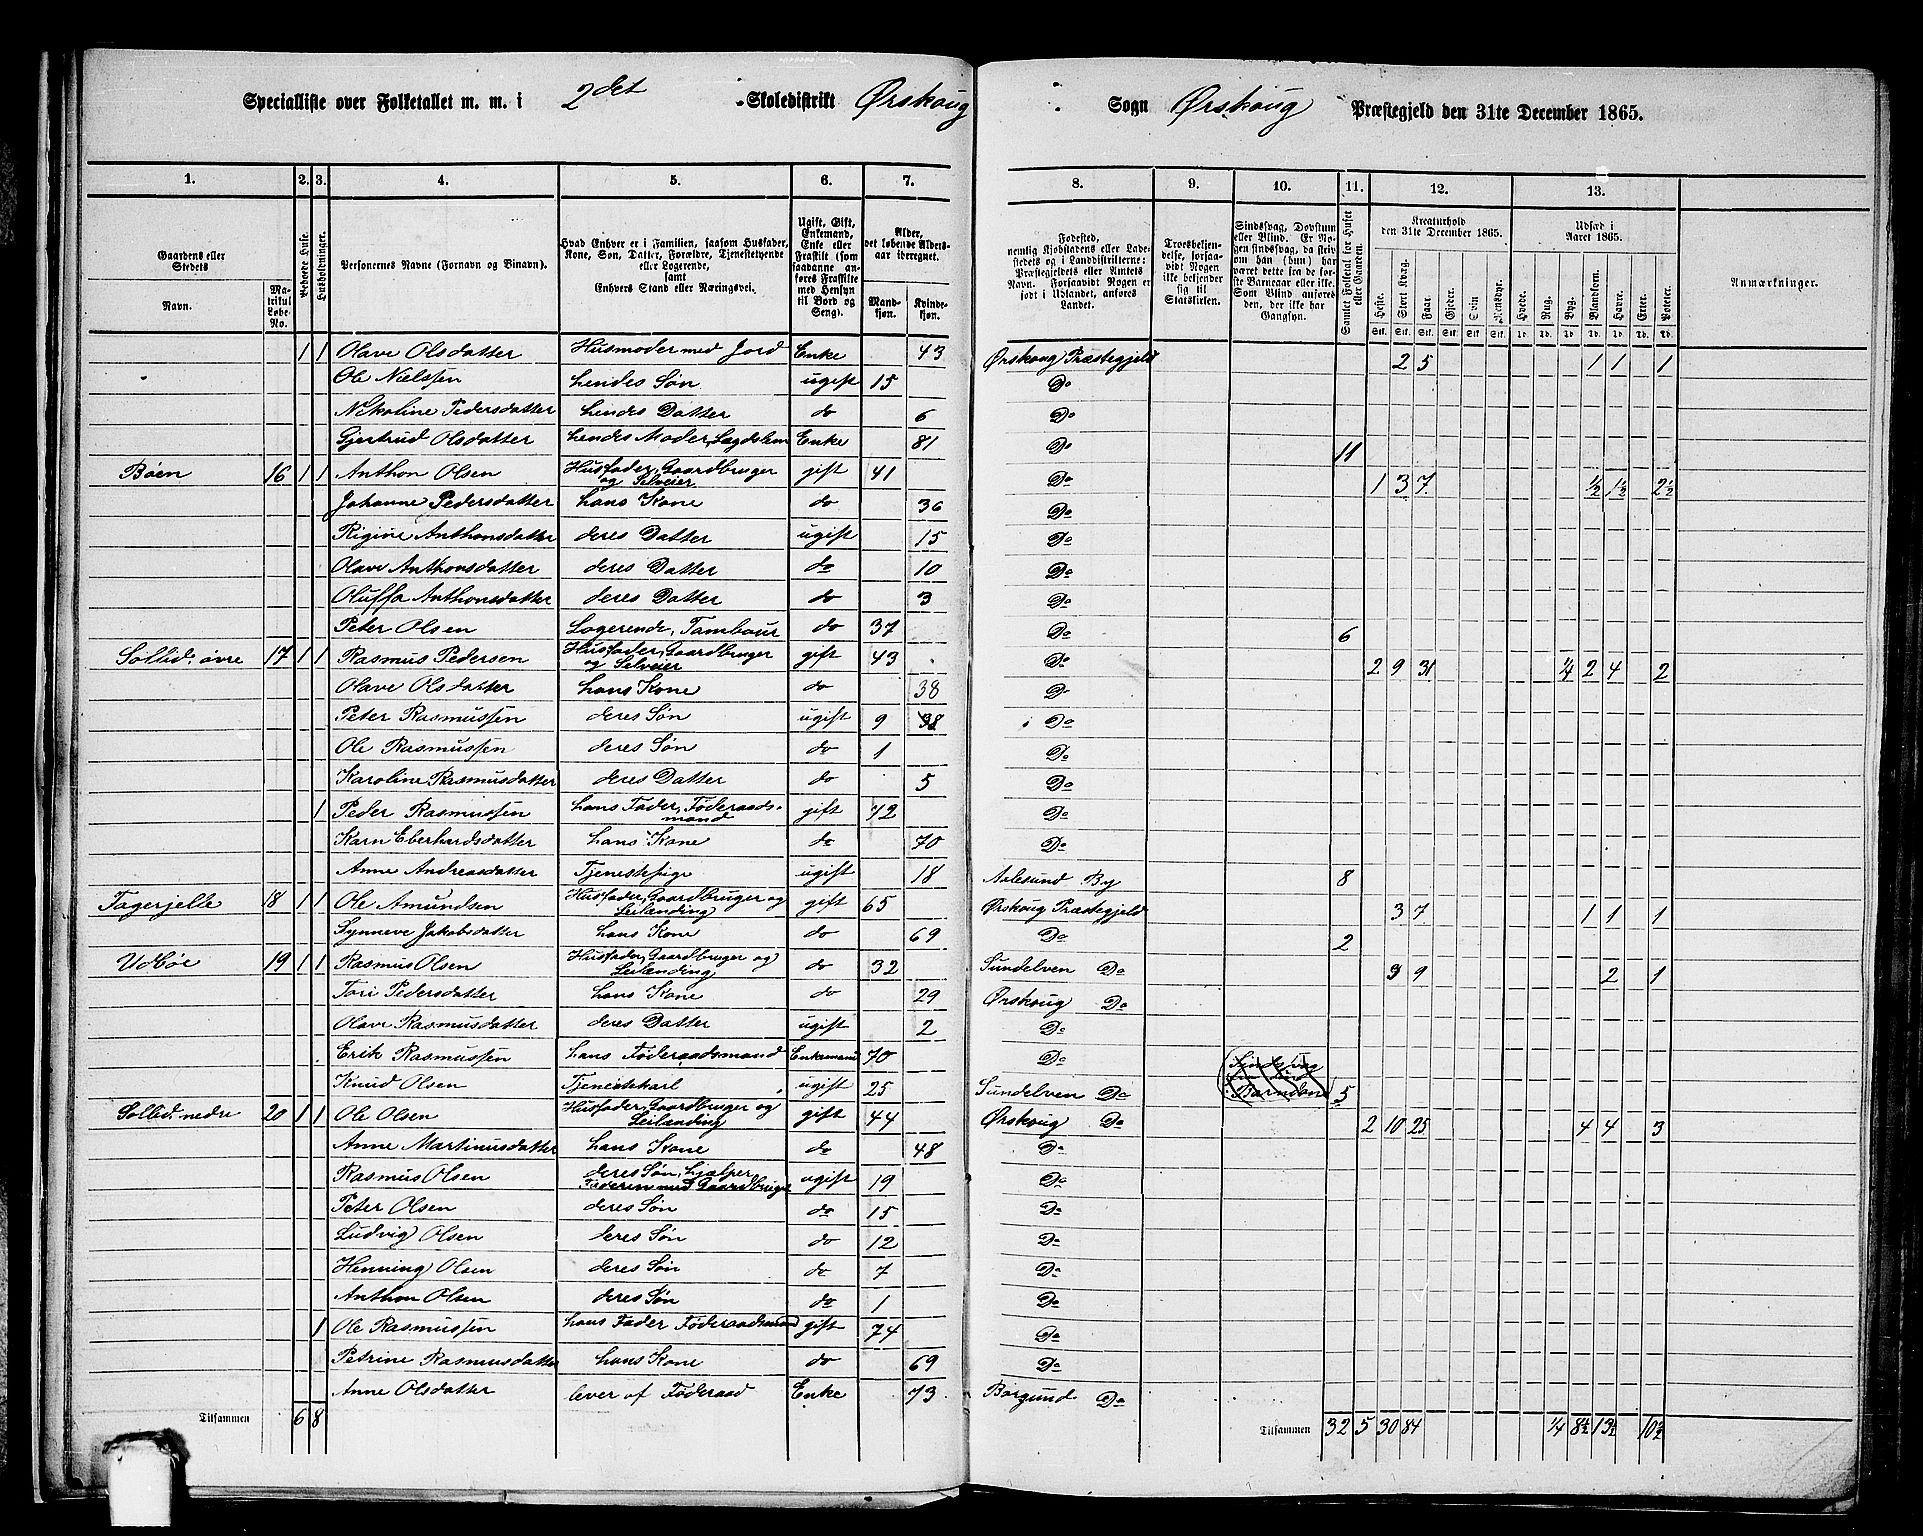 Specialliste over Folketallet m. m. i 2det Skoledistrikt Ørskoug Sogn Ørskoug Præstegjeld den 31te December 1865.
1. 2. 3. 4. 5. 6. 7. 8. 9. 10. 11. 12. 13.
Gaardens eller Stedets
Navn. Matrikul Løbe-No.
Bebyggede Huse.
Husholdninger.
Personernes Navne (Fornavn og Binavn).
Hvad Enhver er i Familien, saasom Husfader, Kone, Søn, Datter, Forældre, Tjenestetyende eller Logerende, samt Enhvers Stand eller Næringsvei.
Ugift, Gift, Enkemand, Enke eller Fraskilt (som saadanne anføres Fraskilte med Hensyn til Bord og Seng).
Alder, det løbende Aldersaar iberegnet.
Mandkjøn. Kvindekjøn.
Fødested, nemlig Kjøbstadens eller Ladestedets og i Landdistrikterne: Præstegjeldets eller Amtets Navn. Forsaavidt Nogen er født i Udlandet, anføres Landet.
Troesbekjendelse, forsaavidt Nogen ikke bekjender sig til Statskirken.
Sindssvag, Døvstum eller Blind. Er Nogen sindssvag, da skrives om han (hun) har været dette fra de første Barneaar eller ikke. Som Blind anføres den, der ikke har Gangsyn.
Samlet Folketal for Huset eller Gaarden.
Kreaturhold den 31te December 1865.
Heste. Stort Kvæg. Faar. Gjeder. Svin. Rensdyr.
Udsæd i Aaret 1865.
Hvede. Rug. Byg. Blandkorn. Havre. Erter. Poteter.
Anmærkninger.
1 1 Olave Olsdatter Husmoder med Jord Enke 43 Ørskoug Præstegjeld 2 5 1 1 1
Ole Nielssen hendes Søn ugift 15 Do
Nikoline Pedersdatter hendes Datter do 6 Do
Gjertrud Olsdatter hendes Moder, Lægdslem Enke 81 Do 11
Bøen 16 1 1 Anthon Olsen Husfader, Gaardbruger og Selveier gift 41 Do 1 3 7 1/2 1 1/2 2 1/2
Johanne Pedersdatter hans Kone do 36 Do
Rigine Anthonsdatter deres Datter ugift 15 Do
Olave Anthonsdatter deres Datter do 10 Do
Oluffa Anthonsdatter deres Datter do 3 Do
Peter Olsen Logerende, Tambour do 37 Do 6
Sollid, øvre 17 1 1 Rasmus Pedersen Husfader, Gaardbruger og Selveier gift 43 Do 2 9 31 1/4 2 4 2
Olave Olsdatter hans Kone do 38 Do
Peter Rasmussen deres Søn ugift 9 38 Do
Ole Rasmussen deres Søn do 1 Do
Karoline Rasmusdatter deres Datter do 5 Do
1 Peder Rasmussen hans Fader, Føderaadsmand gift 72 Do
Karn Eberhardsdatter hans Kone do 70 Do
Anne Andreasdatter Tjenestepige ugift 18 Aalesund By 8
Fagerjelle 18 1 1 Ole Amundsen Husfader, Gaardbruger og Leilænding gift 65 Ørskoug Præstegjeld 3 7 1 1 1
Synneve Jakobsdatter hans Kone do 69 Do 2
Udbøe 19 1 1 Rasmus Olsen Husfader, Gaardbruger og Leilænding do 32 Sundelven Do 3 9 2 1
Tori Pedersdatter hans Kone do 29 Ørskoug Do
Olave Rasmusdatter deres Datter ugift 2 Do
Erik Rasmussen hans Føderaadsmand Enkemand 70 Do
Knud Olsen Tjenestekarl ugift 25 Sundelven Do 5
Sollid, nedre 20 1 1 Ole Olsen Husfader, Gaardbruger og Leilænding gift 44 Ørskoug Do 2 10 25 4 4 3
Anne Martinusdatter hans Kone do 48 Do
Rasmus Olsen deres Søn, hjælper Faderen med Gaardbruget ugift 19 Do
Peter Olsen deres Søn do 15 Do
Ludvig Olsen deres Søn do 12 Do
Henning Olsen deres Søn do 7 Do
Anthon Olsen deres Søn do 1 Do
1 Ole Rasmussen hans Fader Føderaadsmand gift 74 Do
Petrine Rasmusdatter hans Kone do 69 Do
Anne Olsdatter lever af Føderaad Enke 73 Borgund Do
Tilsammen 6 8 Tilsammen 32 5 30 84 1/4 8 1/2 13 1/2 10 1/2